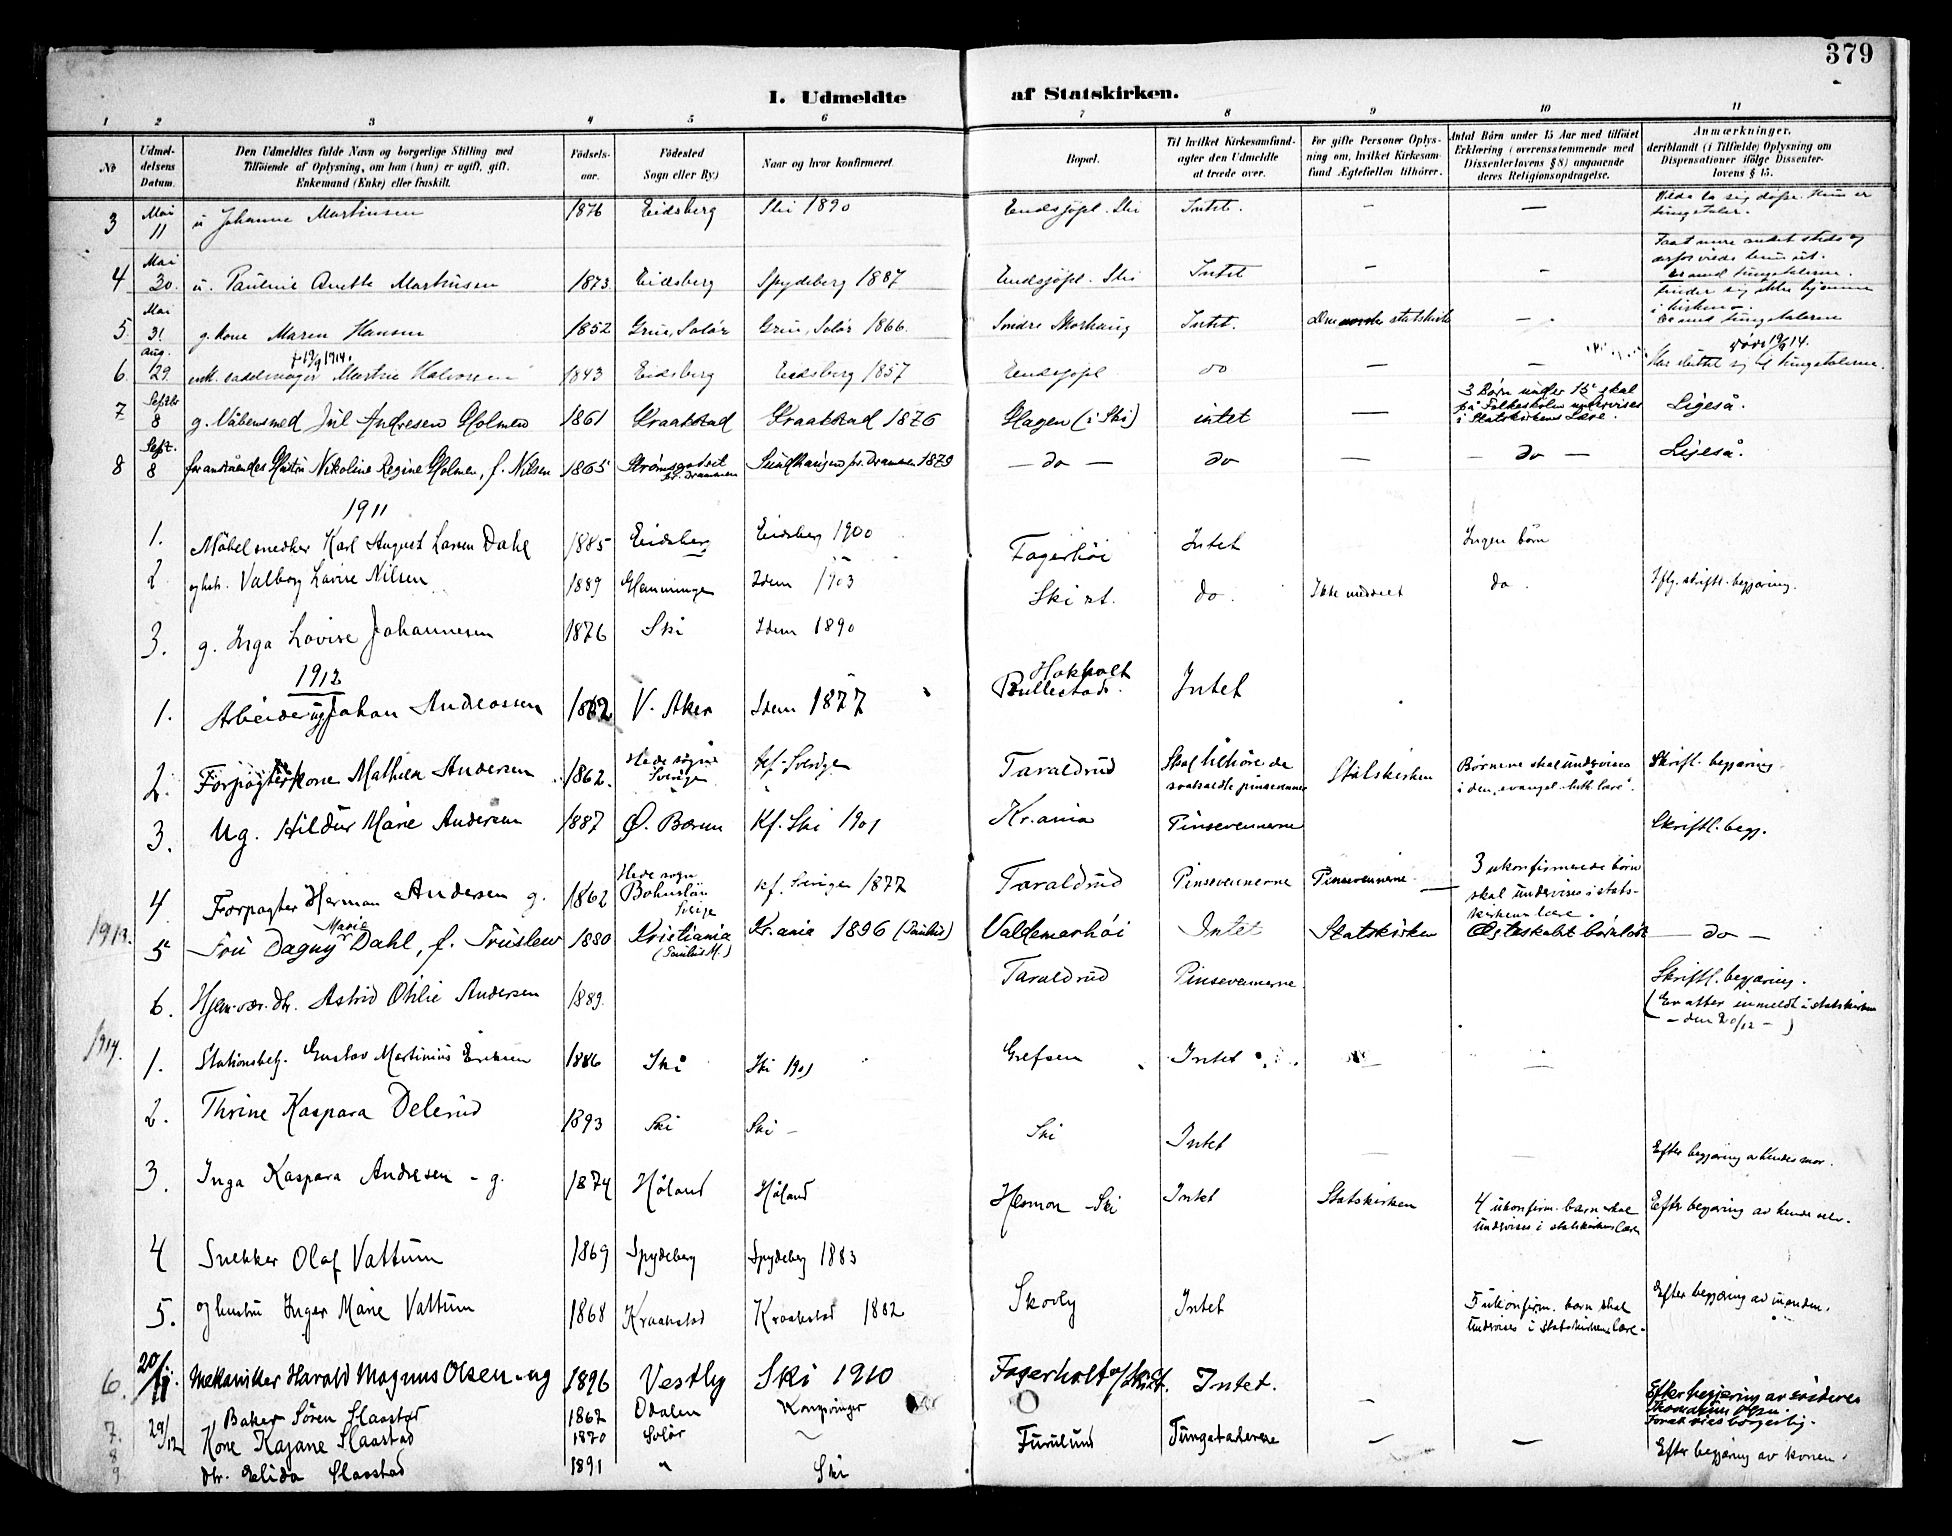 379
I. Udmeldte af Statskirken.
1 2 3 4 5 6 7 8 9 10 11
No
Udmel-
delsens
Datum.
Den Udmeldtes fulde Navn og borgerlige Stilling med
Tilføiende af Oplysning, om han (hun) er ugift, gift,
Enkemand (Enke) eller fraskilt.
Fødsels-
aar.
Fødested
Sogn eller By)
Naar og hvor konfirmeret.
Bopæl.
Til hvilket Kirkesamfund-
agter den Udmeldte
at træde over.
For gifte Personer Oplys-
ning om, hvilket Kirkesam-
fund Ægtefællen tilhører.
Antal Børn under 15 Aar med tilføiet
Erklæring (overensstemmende med
Dissenterlovens § 8) angaaende
deres Religionsopdragelse.
Anmærkninger,
deriblandt (i Tilfælde) Oplysning om
Dispensationer ifølge Dissenter-
lovens § 15.
3 Mai 11 u Johanne Martinsen 1876 Eidsberg Ski 1890 Endsjøpl. Ski Intet. — —
4 Mai 30. u. Pauline Anette Martinsen 1873 Eidsberg Spydeberg 1887 Endsjøpl. Ski Intet — -
5. Mai 31 g. kone Maren Hansen 1852 Grue, Solør Grue, Solør 1866. Søndre Skorhaug Intet. statskirk —
6. Aug. 29. Martine Halvorsen 1843 Eidsberg Eidsberg 1857 Endsjøpl do — — Har sluttet sig til tungetalerne.
† 19/9 1914.
død 19/9 14.
7 Septbr 8 g. Våbensmed Jul Andresen Holmen 1861 Kraakstad Kraakstad 1876 Hagen (i Ski) intet — 3 Børn under 15 skal
på Folkeskolen undervises
i Statskirkens Lære. Ligeså.
8 Sept. 8 foranståendes Hustru Nikoline Regine Holmen, f. Nilsen 1865 Strømsgodset
pr. Drammen Sundhaugen pr. Drammen 1879 — do — do — — do — Ligeså.
1911
1. Møbelsnedker Karl August Larsen Dahl 1885 Eidsberg Eidsberg 1900 Fagerhøi Intet Ingen børn
2 og hstr. Valborg Lovise Nilsen 1889 Glemminge Idem 1903 Ski st. do. Ikke do Iflg. skriftl. begjæring.
3. g. Inga Lovise Johannesen 1876 Ski Idem 1890
1912
1. Arbeider ug Johan Andreassen 1862 V. Aker Idem 1877 Hakholt
Bullestad. Intet
2. Forpagterkone Mathea Andersen 1862. Hede sogn
Sverige kf. Sverige Taraldrud Skal tilhøre de
saakaldte pinsevenner Statskirken Børnene skal undervises
i den evangel. luth. lære. Skriftl. begjæring
3. Ug. Hildur Marie Andersen 1887 Ø. Bærum Kf. Ski 1901 Kr.ania Pinsevennerne Skriftl. begj.
4 Forpagter Herman Andersen g. 1862 Hede sogn
Bohuslän
Sverige kf. Sverige 1877 Taraldrud Pinsevennerne Pinsevennerne — 3 ukonfirmerede børn
skal undervises i stats-
kirkens lære.
1913. 5 Fru Dagny Marie Dahl, f. Truslew 1880 Kristiania
(Paulus M.) Kr.ania 1896 (Paulus) Valdemarhøi Intet Statskirken Ægteskabet barnløst — do —
6. Hjem.vær. dtr. Astrid Othlie Andersen 1889. Taraldrud Pinsevennerne. Skriftl. begjæring.
(Er atter inmeldt i statskirken
— den 20/12 — )
1914. 1. Stationsbetj. Gustav Martinius Eriksen 1886 Ski Ski 1901 Grefsen Intet — —
2. Thrine Kaspara Delerud 1893 Ski Ski — Ski Intet — — Efter begjæring av hendes mor.
3. Inga Kaspara Andresen - g. 1874 Høland Høland Hesmon Ski Intet Statskirken 4 ukonfirm. barn skal
undervises i statskirkens lære Efter begjæring av hende selv.
4 Snekker Olaf Vattum 1869 Spydeberg Spydeberg 1883
5. og hustru Inger Marie Vattum 1868 Kraakstad Kraakstad 1882 Skovly Intet 5 ukonfirm. barn skal
undervises i statskirkens lære. Efter begjæring av manden.
6. 20/11. Mekaniker Harald Magnus Olsen - ug 1896 Vestby Ski 1910 Fagerholt Intet. — Efter begjæring av
borgerlig.
7. 29/12 Baker Søren Slaastad 1862 Odalen Kongsvinger
8 Kone Kajane Slaastad 1870 Solør Furulund Tungetalerne — — Efter begjæring av konen.
9 dtr. Elida Slaastad 1891 " Ski